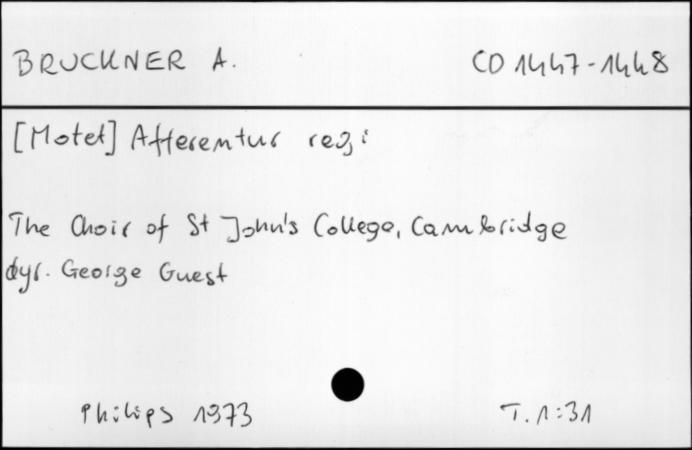 BRUCKNER A. CD 1447-1448
[Motet] Afferentur regi
The Choir of St John's College, Cambridge
dyr. George Guest
Philips 1973 T. 1:31